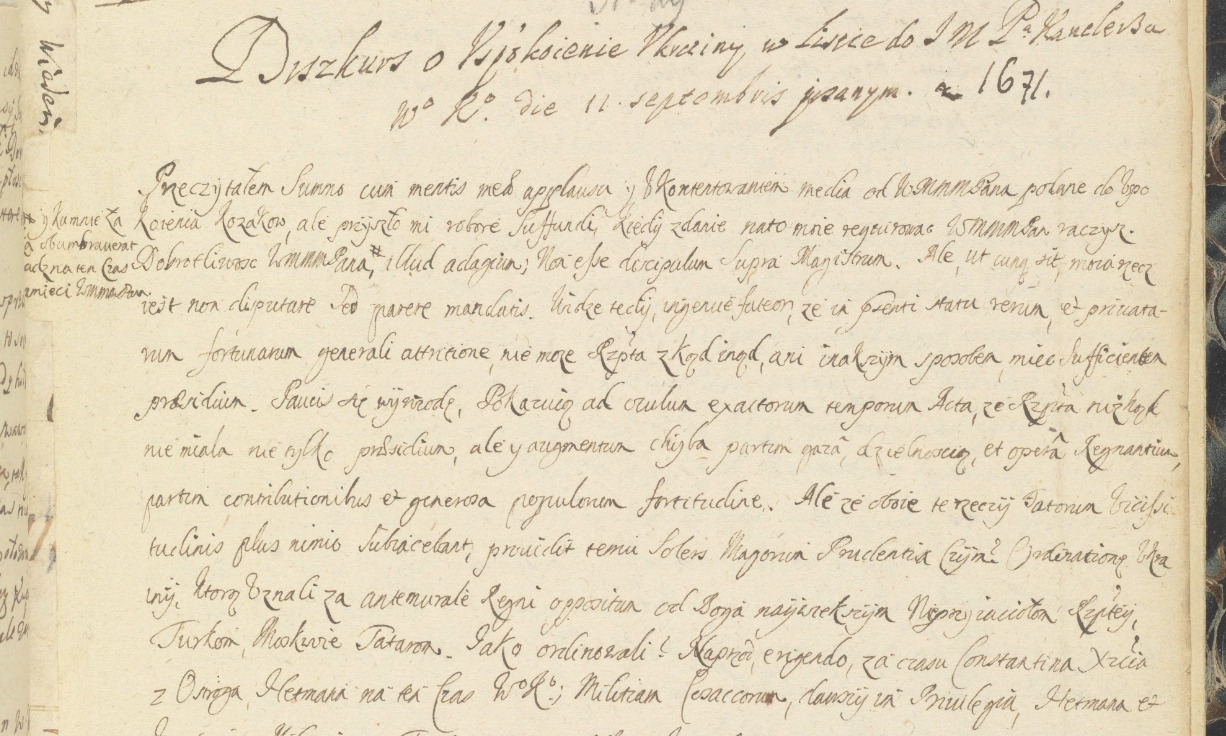 Diszkurs o Vspokoienie Vkrainy, w liscie do I M Pa Kanclerza
Wo Ko. die 11. septembris pisanym. a 1671.
Przeczytałem Summo cum mentis meæ applausu y Vkontentowaniem media od WMMMPana podane do Vspo
koienia Kozakow, ale przyszło mi robore Suffundi, kiedy zdanie na to moie reguirowac WMMMPan raczysz.
y ku mnie za
Dobrotliwosc WMMMPana, # illud adagium; Non esse discipulum Supra Magistrum. Ale, ut cunq sit, moia rzecz
obumbraverat
na ten czas
iest non disputare sed parere mandatis. Widzę tedy, ingenue fateor, ze in pñti statu rerum, et privata-
WMMMPan
rum fortunarum generali attritione, nie moze Rzpta z kąd inąd, ani inakszym sposobem, miec Sufficientem
præsidium. Paucis się wywiodę, Pokazuią ad oculum exactorum temporum Acta, ze Rzpta nizkąd
nie miała nie tylko præsidium, ale y augmentum chyba partim gazâ, dzielnoscią, et operâ Regnantium,
partim contributionibus et generosa populorum fortitudine. Ale ze oboie te rzeczy Fatorum Vicissi
tudinis plus nimio Subiacebant, providit temu Solers Maiorum Prudentia Czym? Ordinationę Vkra
iny, ktorą Vznali za antemurale Regni oppositum od Boga naywiekszym Nieprzyiaciołom Rzptey,
Turkom, Moskwie Tatarom. Iako ordinowali? Naprzod, erigendo, za czasu Constantina Xzcia
z Ostroga, Hetmana na ten czas Wo Ko; Militiam Cosaccorum, dawszy im Privilegia, Hetmana et